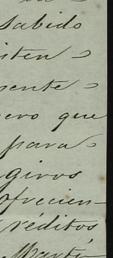 sabido
isten
sente
ero que
para
giros
ofrecien-
réditos
Martí